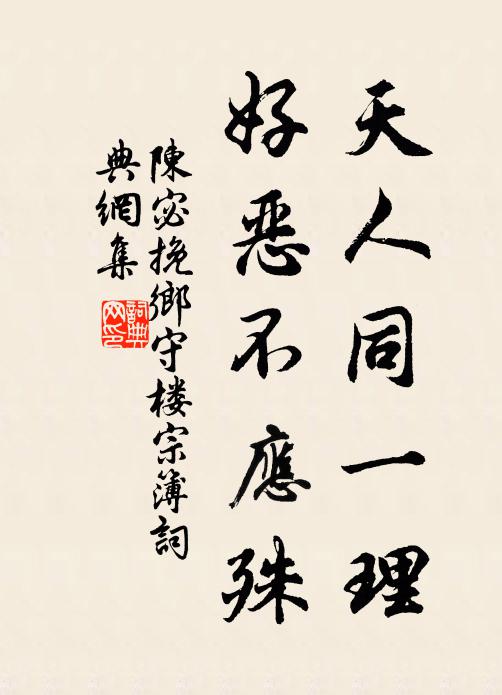 天人同一理
好恶不應殊
陳宓挽鄉守楼宗簿詞
典網集
詞典網印